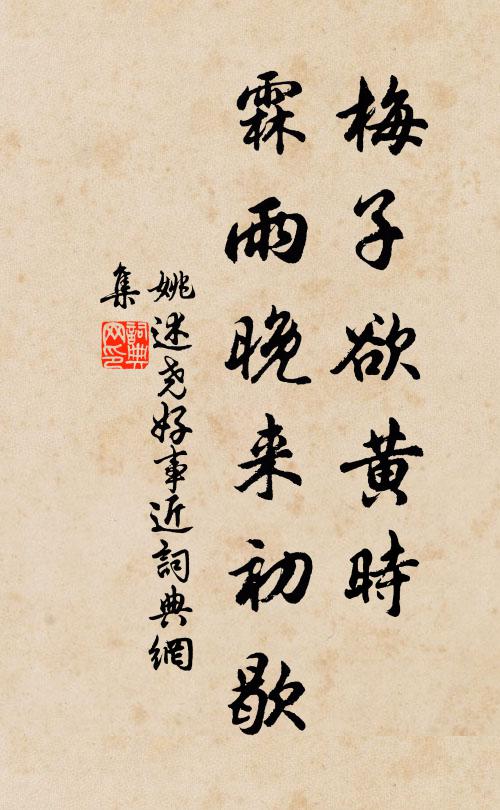 梅子欲黄時
霖雨晚来初歇
姚述尧好事近詞典網
集
詞典网印